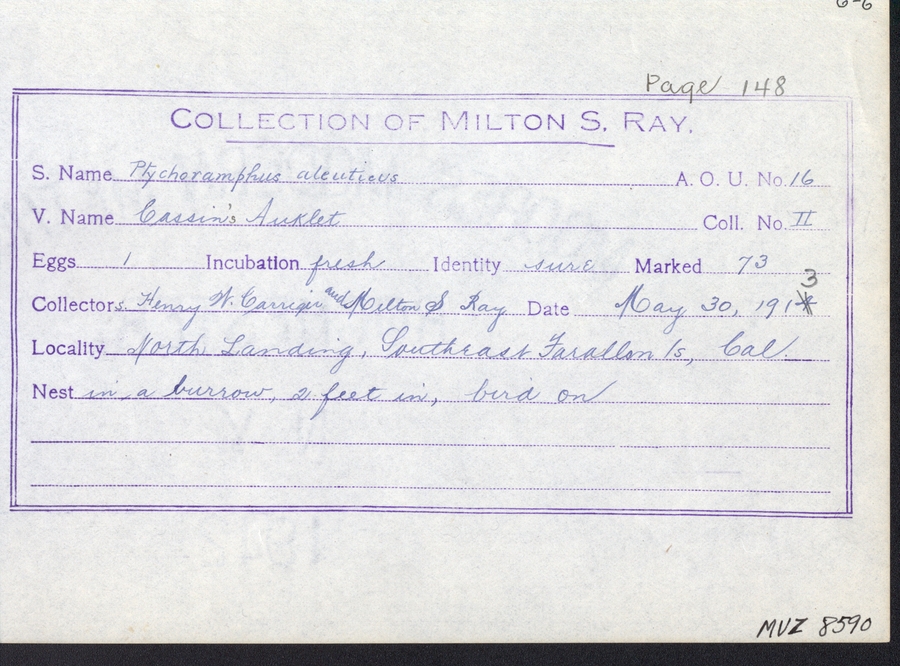 6-6
Page 148
COLLECTION OF MILTON S. RAY.
S. Name Ptychoramphus aleuticus A. O. U. No. 16
V. Name Cassin's Auklet Coll. No. II
Eggs 1 Incubation fresh Identity sure Marked 73
3
Collectors. Henry W. Carriger and Milton S Ray Date May 30, 191
Locality North Landing, Southeast Farallon Is, Cal.
Nest in a burrow, 2 feet in, bird on
MVZ 8590